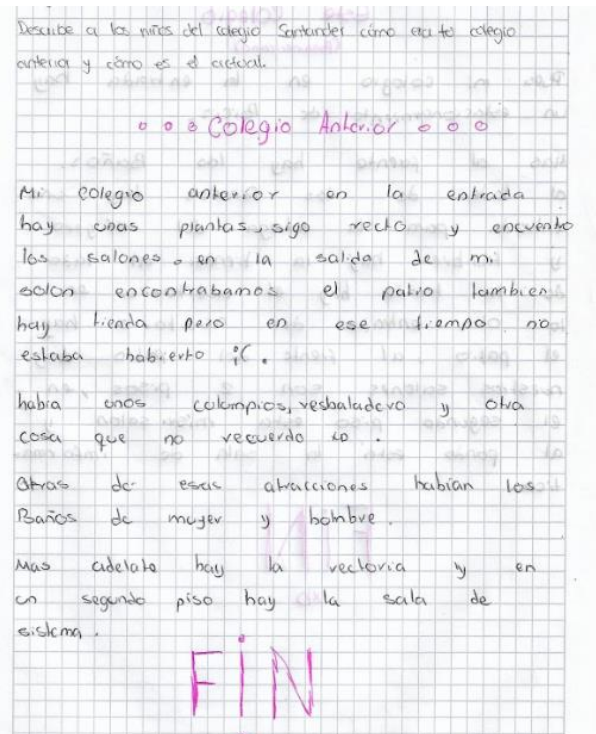 Describe a los niños del colegio Santander cómo era tú colegio
anterior y cómo es el actual.
Colegio Anterior
Mi colegio anterior en la entrada
hay unas plantas, sigo recto y encuentro
los salones. en la salida de mi
salon encontrabamos el patio tambien
hay tienda pero en ese tiempo no
estaba habierto :(.
habia unos columpios, resbaladero y otra
cosa que no recuerdo xD.
Atras de esas atracciones habian los
Baños de mujer y hombre.
Mas adelate hay la rectoria y en
un segundo piso hay la sala de
sistema.
FIN